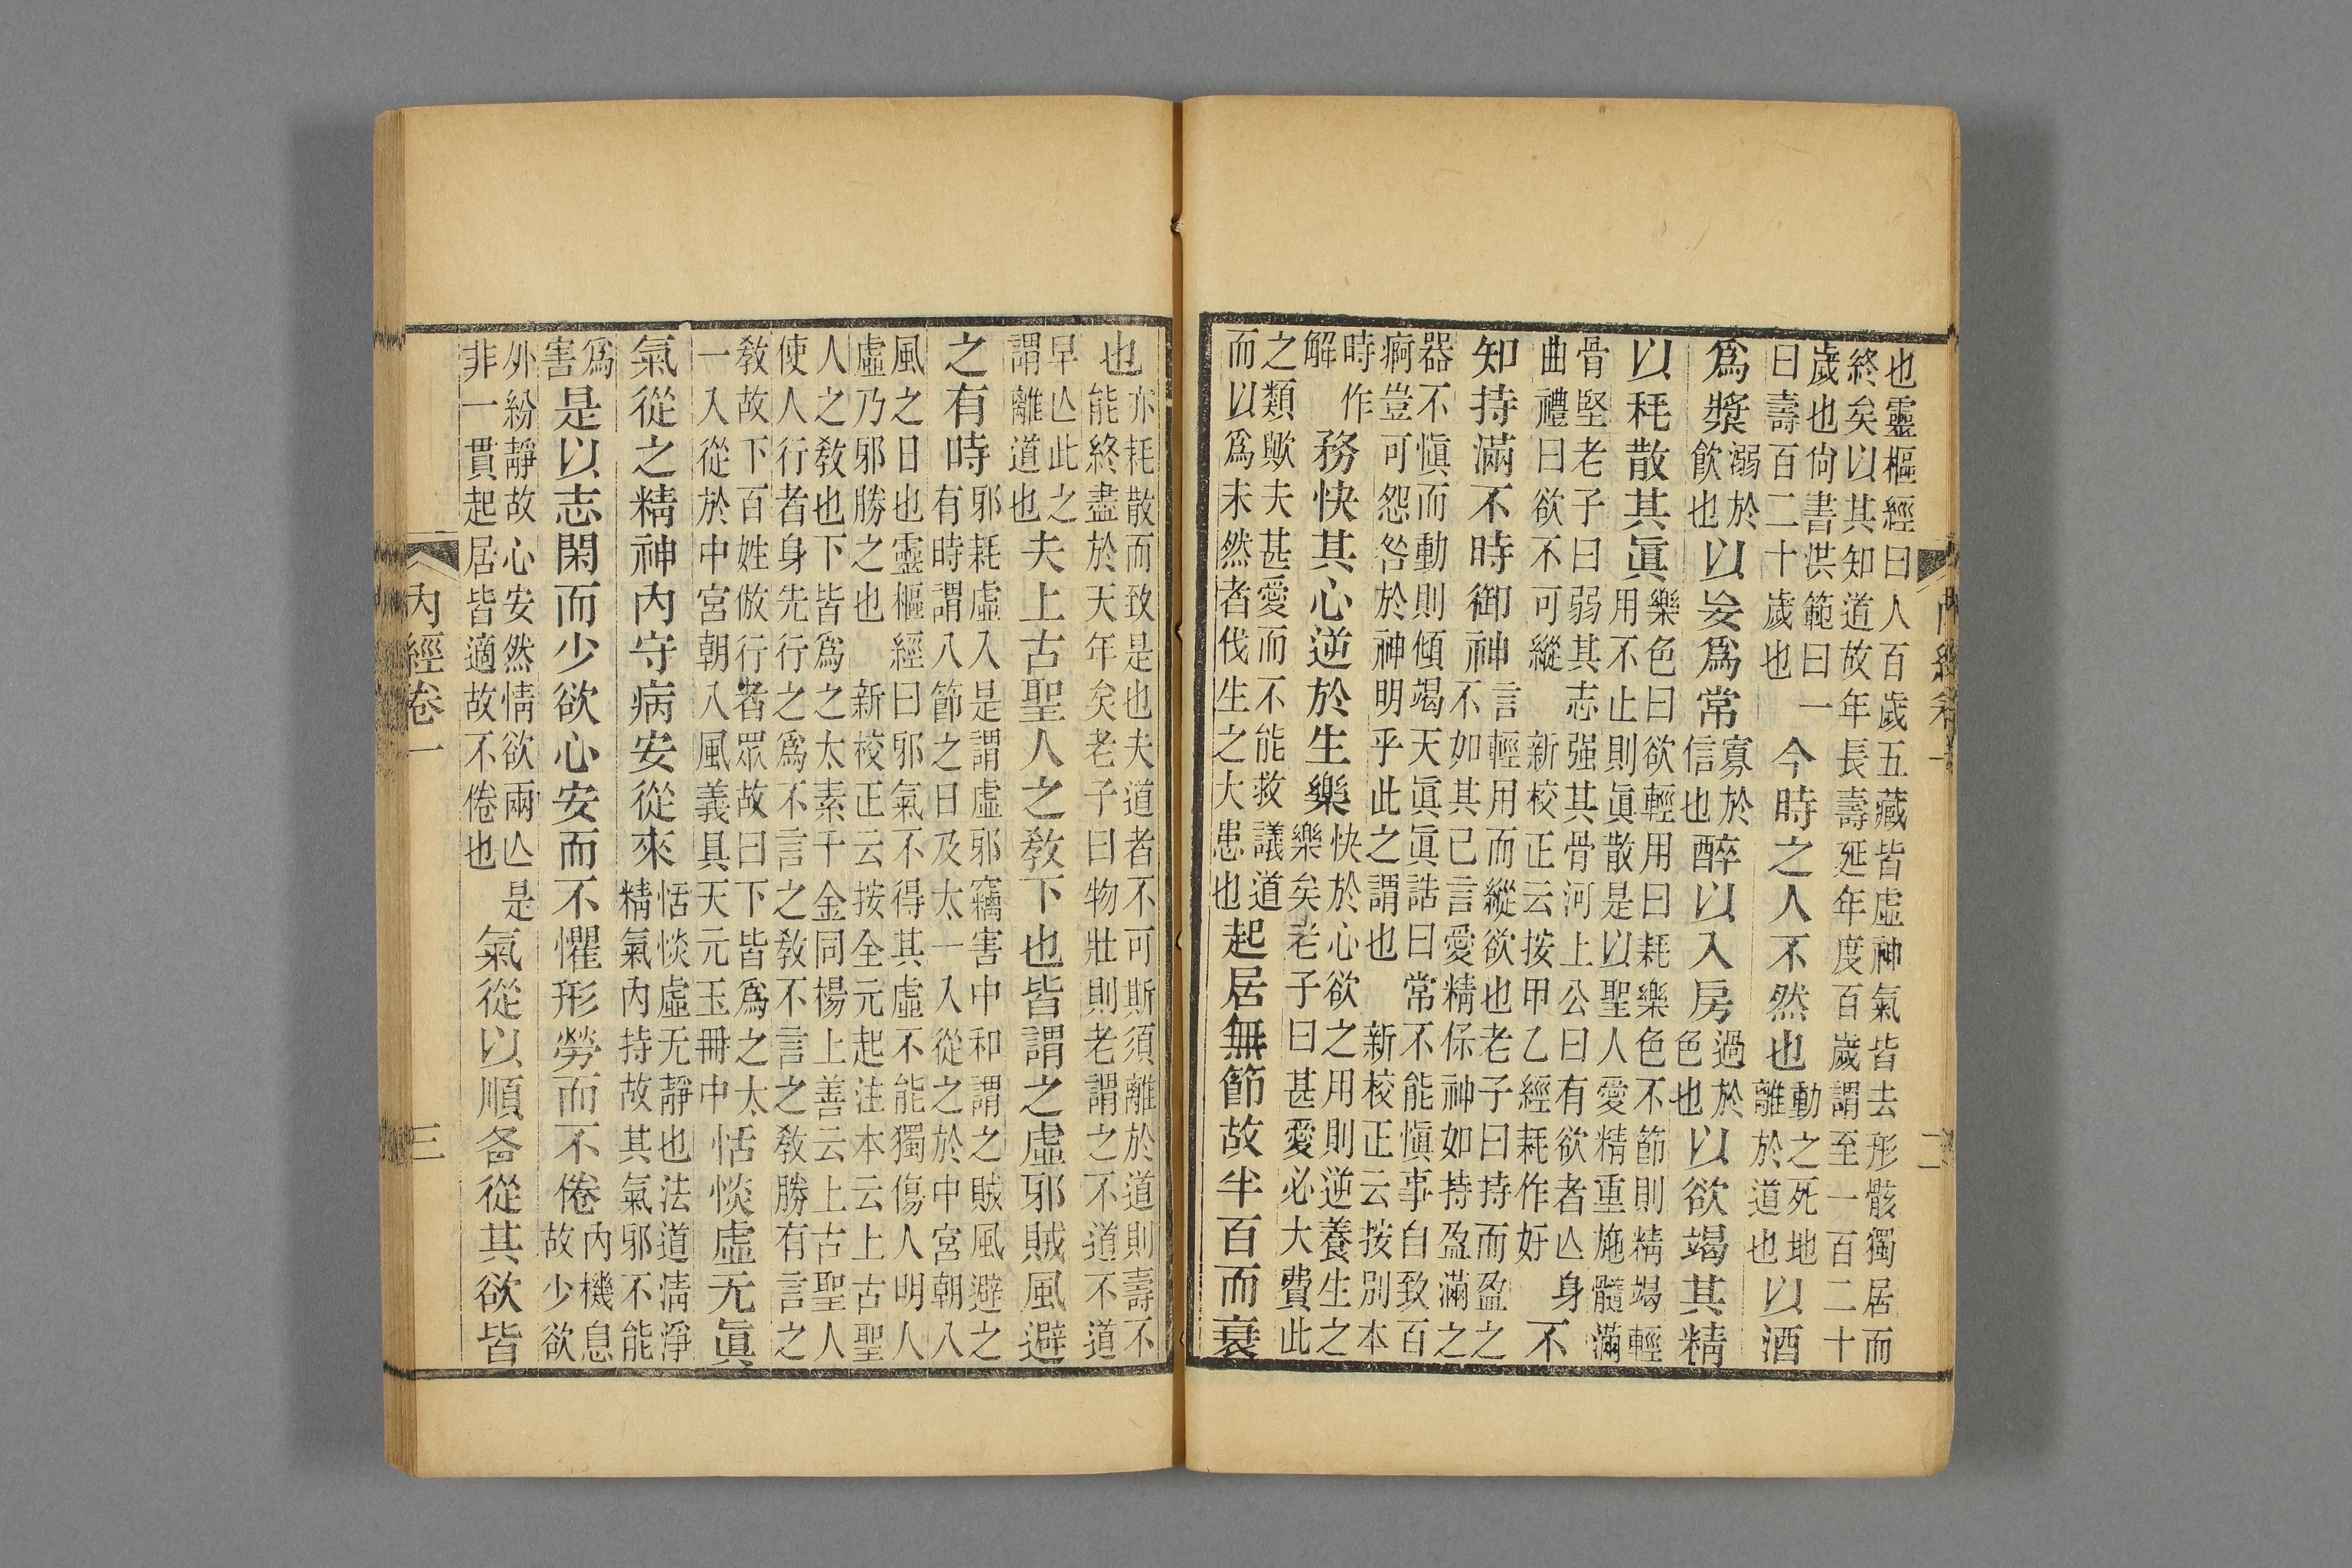 也靈樞經曰人百歲五藏皆虛神氣皆去形骸獨居而
終矣以其知道故年長壽延年度百歲謂至一百二十
歲也尙書洪範曰一
曰壽百二十歲也
今時之人不然也
動之死地
離於道也
以酒
爲漿
溺於
飲也
以妄爲常
寡於
信也
醉以入房
過於
色也
以欲竭其精
以耗散其眞
樂色曰欲輕用曰耗樂色不節則精竭輕
用不止則眞散是以聖人愛精重施髓滿
骨堅老子曰弱其志强其骨河上公曰有欲者亾身
曲禮曰欲不可縱 新校正云按甲乙經耗作好
不
知持滿不時御神
言輕用而縱欲也老子曰持而盈之
不如其已言愛精保神如持盈滿之
器不愼而動則傾竭天眞眞誥曰常不能愼事自致百
痾豈可怨咎於神明乎此之謂也 新校正云按別本
時作
解
務快其心逆於生樂
快於心欲之用則逆養生之
樂矣老子曰甚愛必大費此
之類歟夫甚愛而不能救議道
而以爲未然者伐生之大患也
起居無節故半百而衰
也
亦耗散而致是也夫道者不可斯須離於道則壽不
能終盡於天年矣老子曰物壯則老謂之不道不道
早亾此之
謂離道也
夫上古聖人之敎下也皆謂之虛邪賊風避
之有時
邪耗虛入是謂虛邪竊害中和謂之賊風避之
有時謂八節之日及太一入從之於中宮朝八
風之日也靈樞經曰邪氣不得其虛不能獨傷人明人
虛乃邪勝之也 新校正云按全元起注本云上古聖
人之敎也下皆爲之太素千金同楊上善云上古聖人
使人行者身先行之爲不言之敎不言之敎勝有言之
敎故下百姓倣行者眾故曰下皆爲之太
一入從於中宮朝八風義具天元玉冊中
恬惔虛无眞
氣從之精神內守病安從來
恬惔虛无靜也法道淸淨
精氣內持故其氣邪不能
爲
害
是以志閑而少欲心安而不懼形勞而不倦
內機息
故少欲
外紛靜故心安然情欲兩亾是
非一貫起居皆適故不倦也
氣從以順各從其欲皆
內經卷一 三